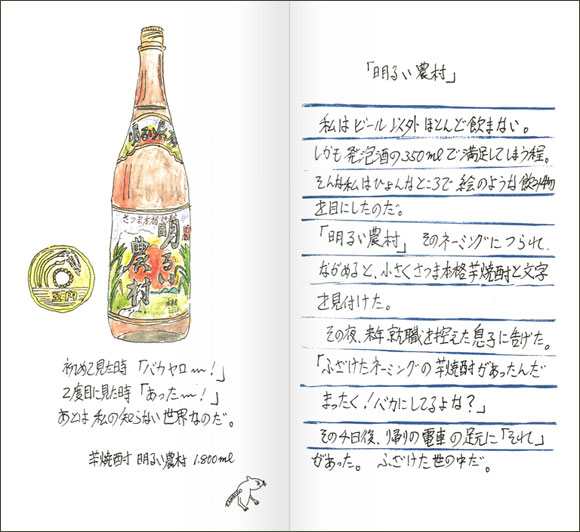 さつま本格芋焼酎
明るい
農村
初めて見た時「バカヤロー!」
2度目に見た時「あったー!」
あとは私の知らない世界なのだ。
芋焼酎 明るい農村 1.800ml
「明るい農村」
私はビール以外ほとんど飲まない。
しかも発泡酒の350mlで満足してしまう程。
そんな私はひょんなところで絵のような飲み物
を目にしたのだ。
「明るい農村」 そのネーミングにつられて、
ながめると、小さくさつま本格芋焼酎と文字
を見付けた。
その夜、来年就職を控えた息子に告げた。
「ふざけたネーミングの芋焼酎があったんだ
まったく!バカにしてるよな?」
その4日後、帰りの電車の足元に「それ」
があった。 ふざけた世の中だ。